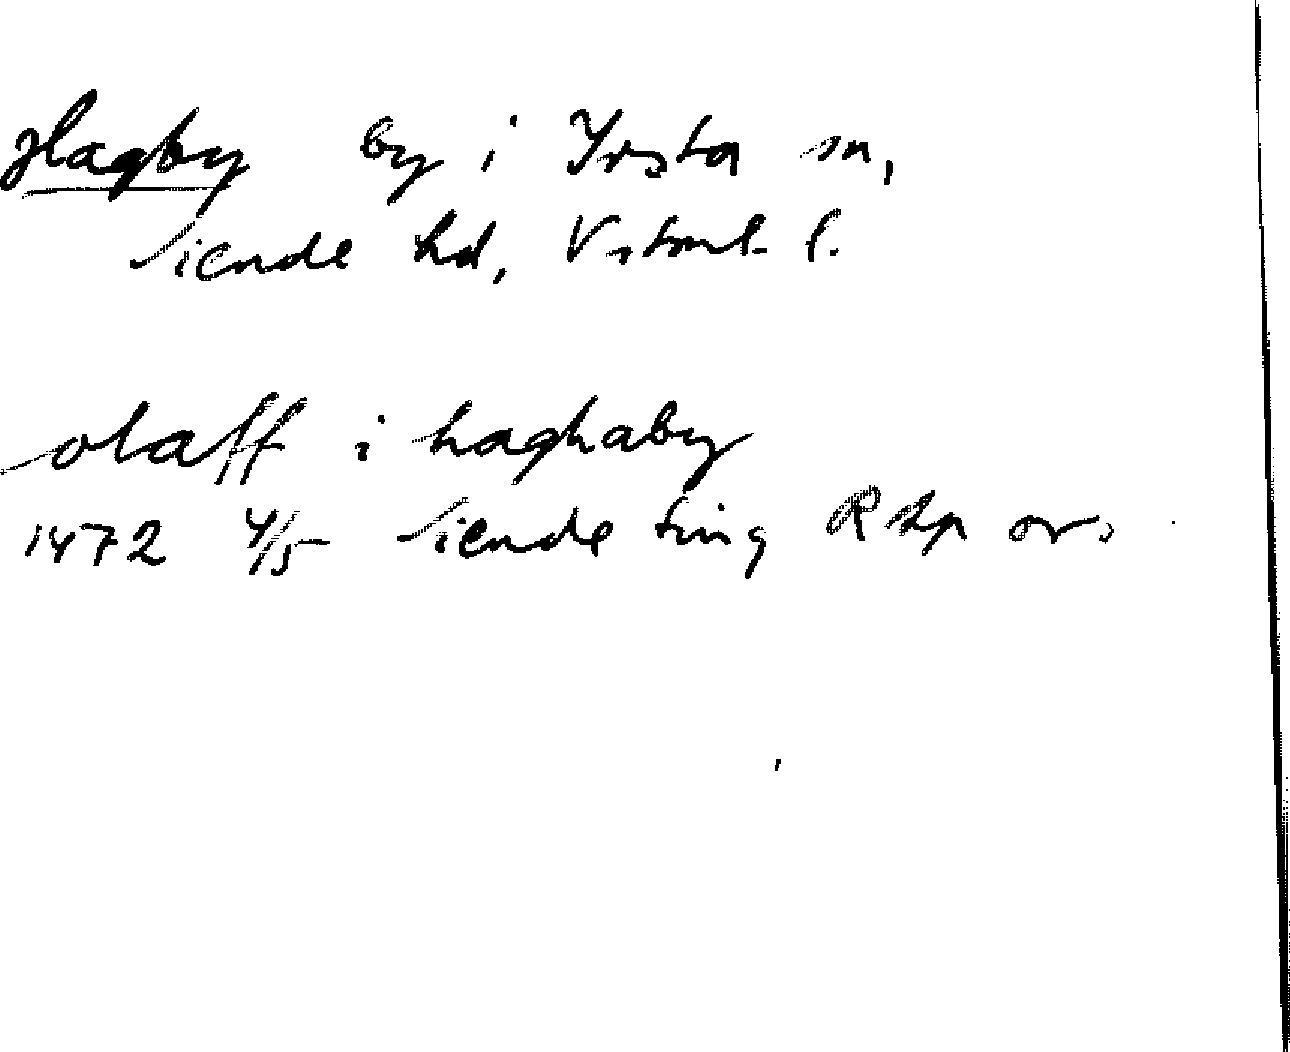 Hagby by i Irsta sn,
Siende hd, Vstml. l.
olaff i haghaby
1472 4/5 Siende ting RAp or.